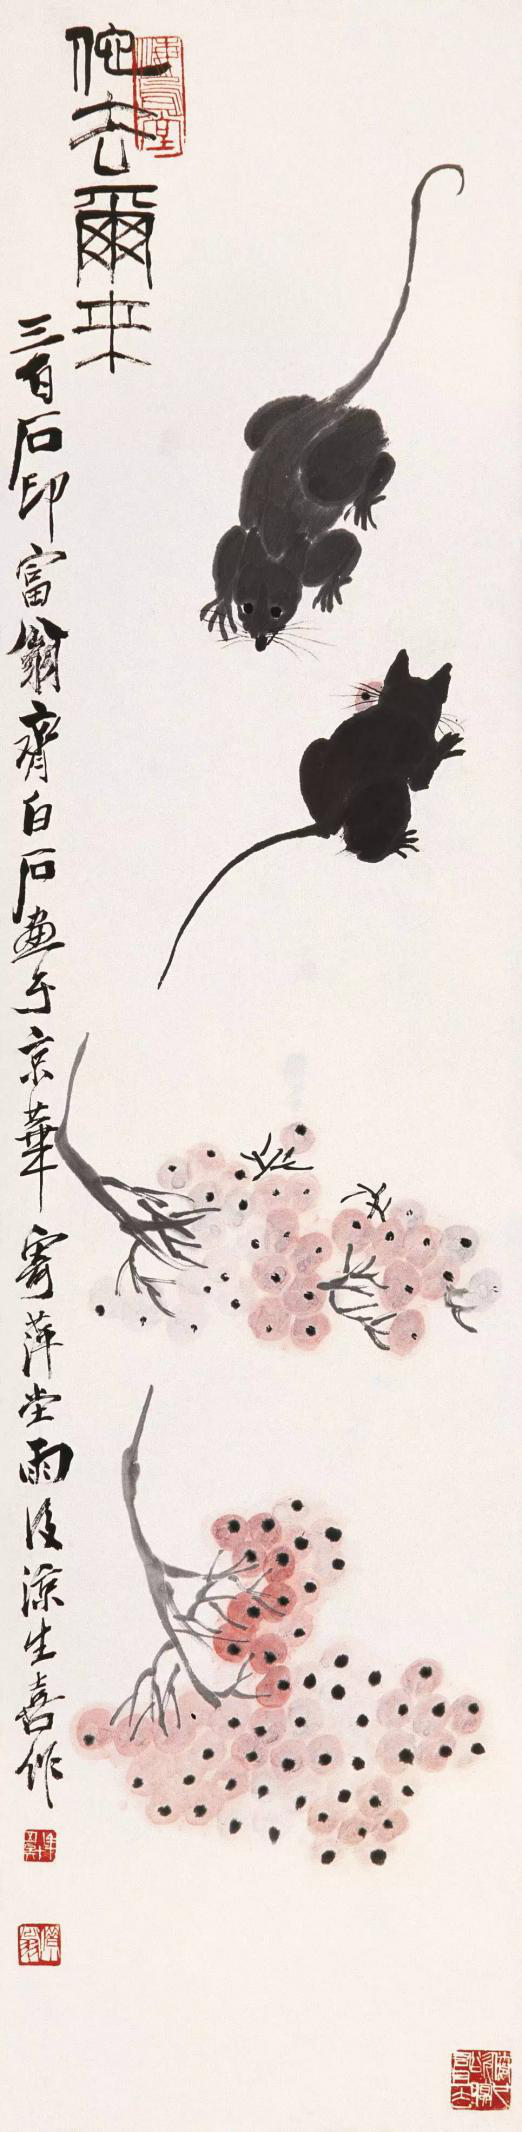 他去爾来
三百石印富翁齊白石画于京華寄萍堂雨後涼生喜作